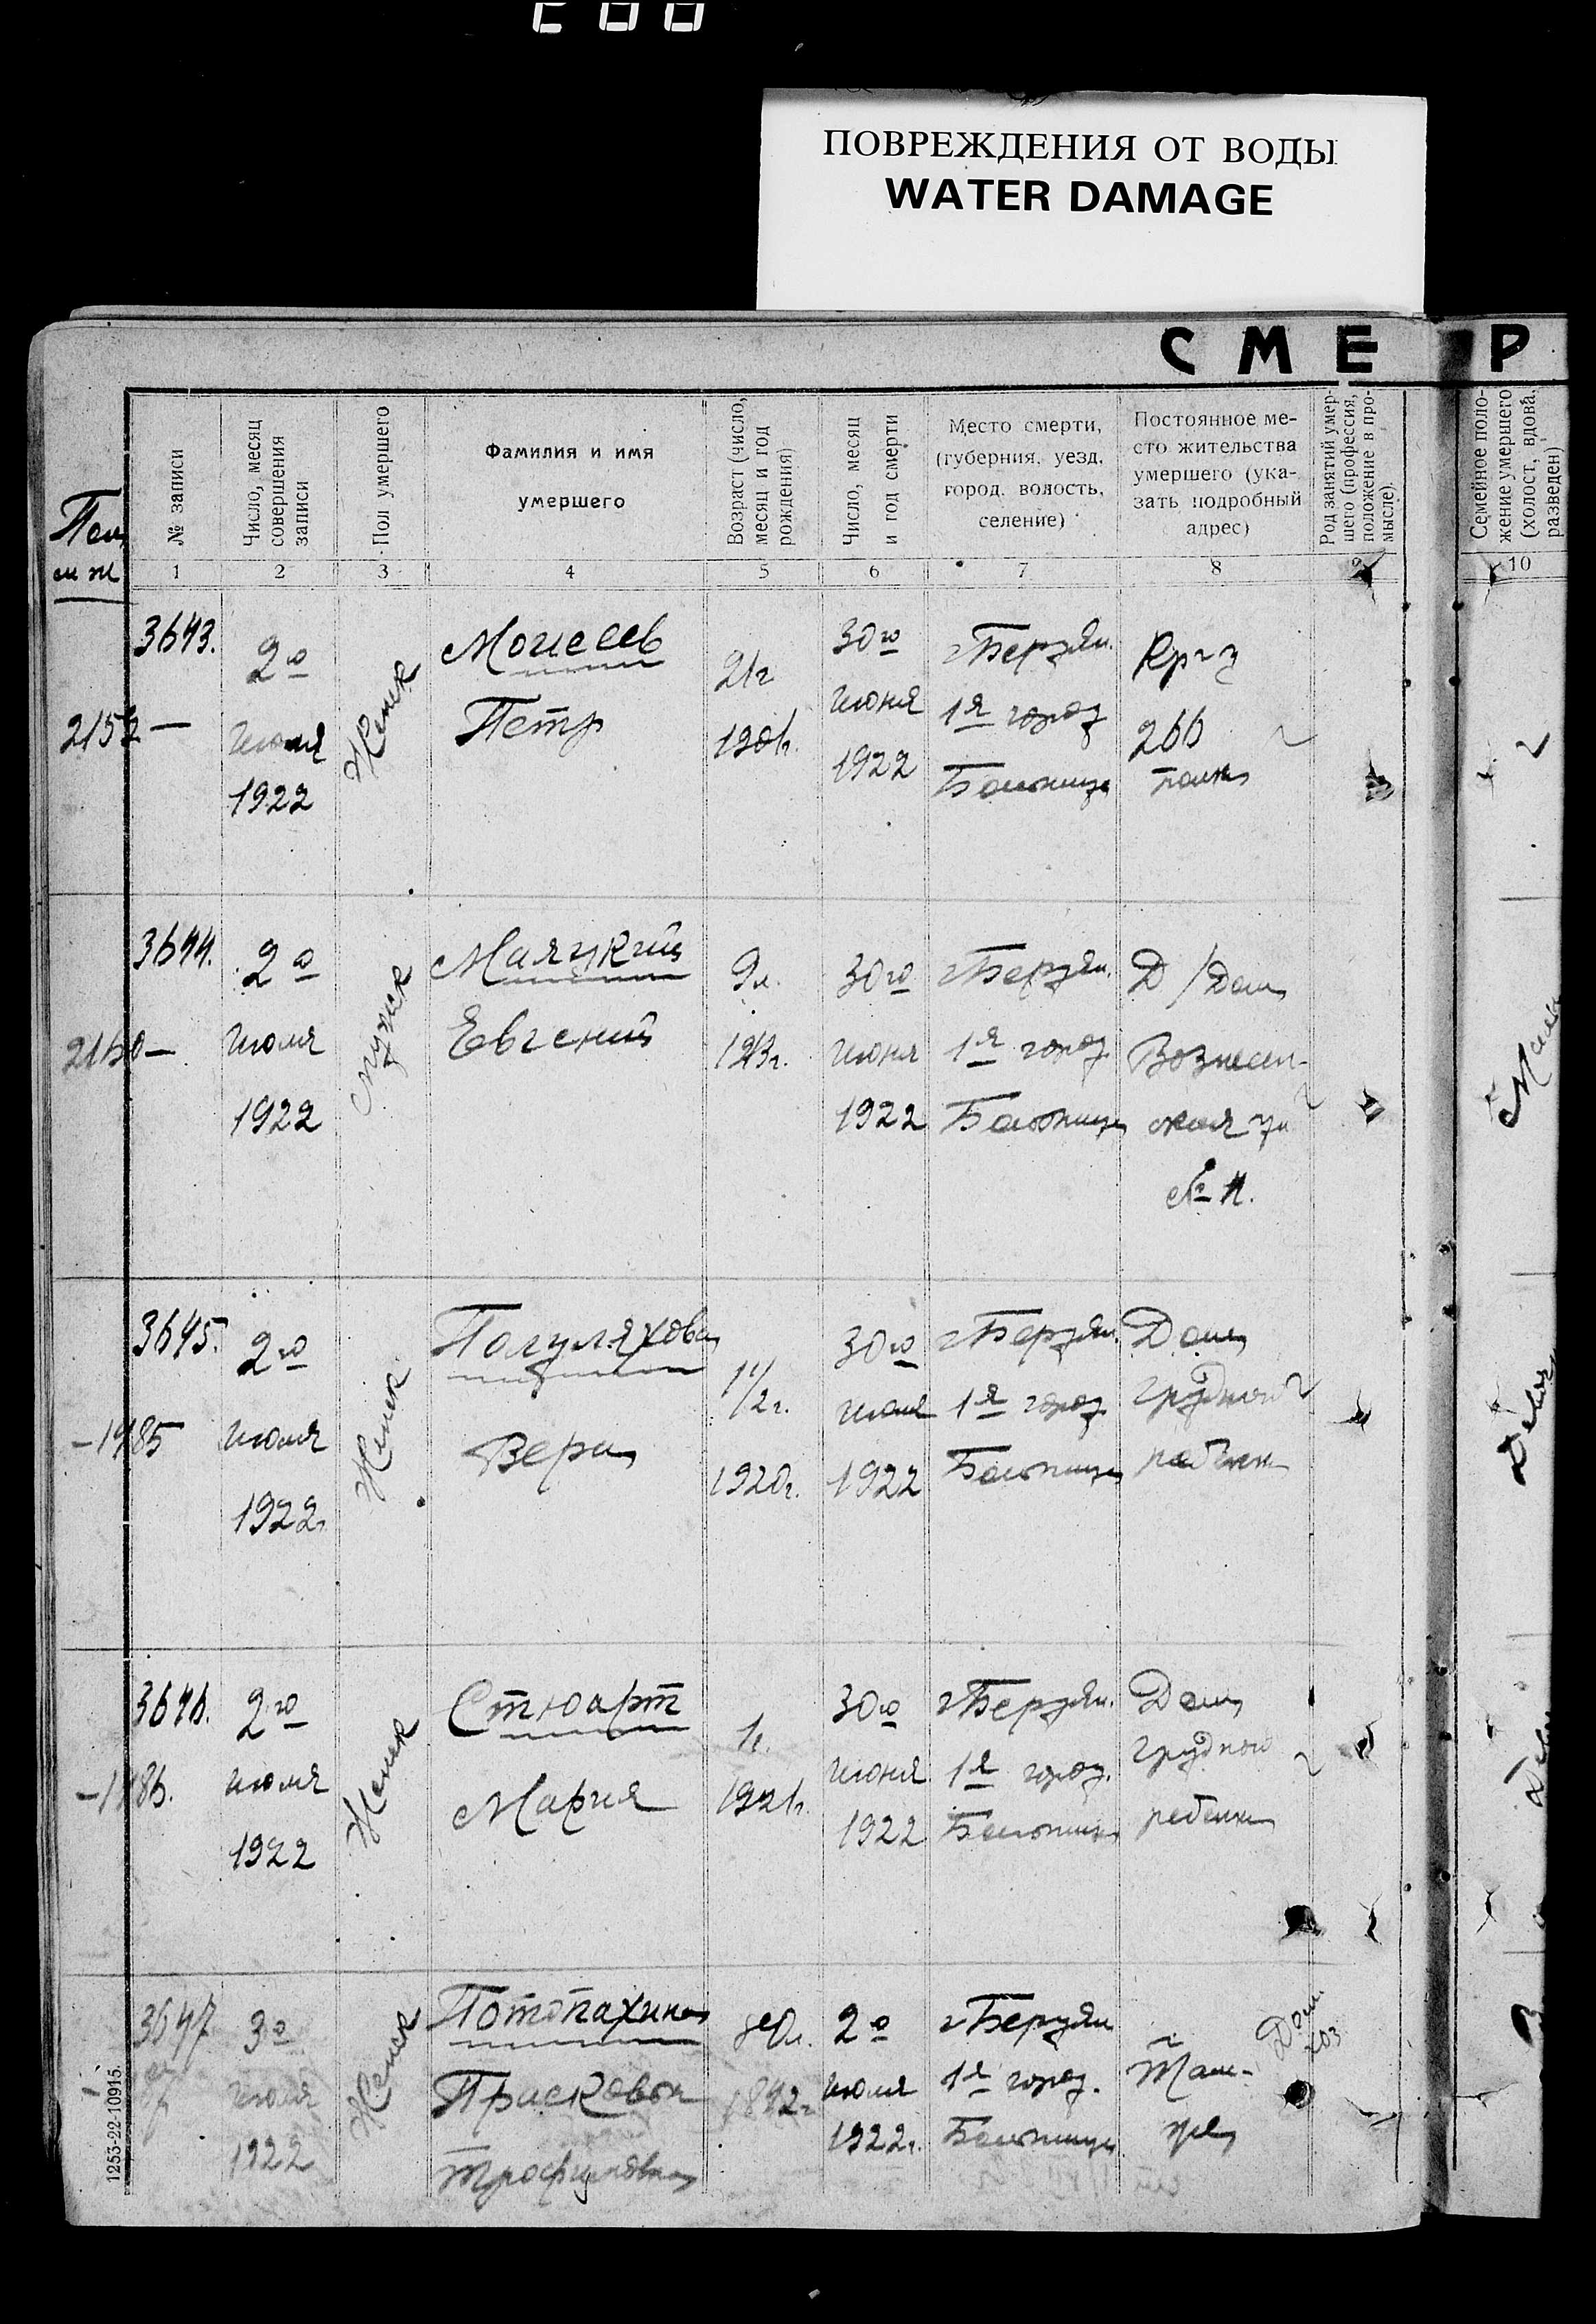 ПОВРЕЖДЕНИЯ ОТ ВОДЫ
WATER DAMAGE
СМЕР
Пол
м ж
№ записи
Число, месяц
совершения
записи
Пол умершего
Фамилия и имя
умершего
Возраст (число,
месяц и год
рождения)
Число, месяц
и год смерти
Место смерти,
(губерния, уезд,
город, волость,
селение)
Постоянное ме-
сто жительства
умершего (ука-
зать подробный
адрес)
Род занятий умер-
шего (профессия,
положение в про-
мысле).
Семейное поло-
жение умершего
(холост, вдова,
разведен)
1 2 3 4 5 6 7 8 9 10
3643.
2го
июля
1922
Женск
Моисеев
Петр
21г
1901г.
30го
июня
1922
г Бердян.
1я город
Больница
266
полка
3644.
2160 —
2го
июля
1922
Мужск
Маяцкий
Евгений
9л.
1913г.
30го
июня
1922
г Бердян.
1я город
Больница
Д/Дом
Вознесен-
ская
3645.
— 1485
2го
июля
1922
Женск
Полуляхова
Вера
1 1/2 г.
1920г.
30го
июня
1922
г Бердян.
1я город
Больница
Дом
грудного
ребенка
3646.
— 1486.
2го
июля
1922
Женск
Стюарт
Мария
1г.
1921г.
30го
июня
1922
г Бердян.
1я город.
Больница
Дом
грудного
ребенка
3647
3го
июля
1922
Женск
Потопахина
Прасковья
Трофимовна
80л.
1842г
2го
июля
1922г.
г Бердян
1я город.
Больница
Дом
203
1253-22-10915.